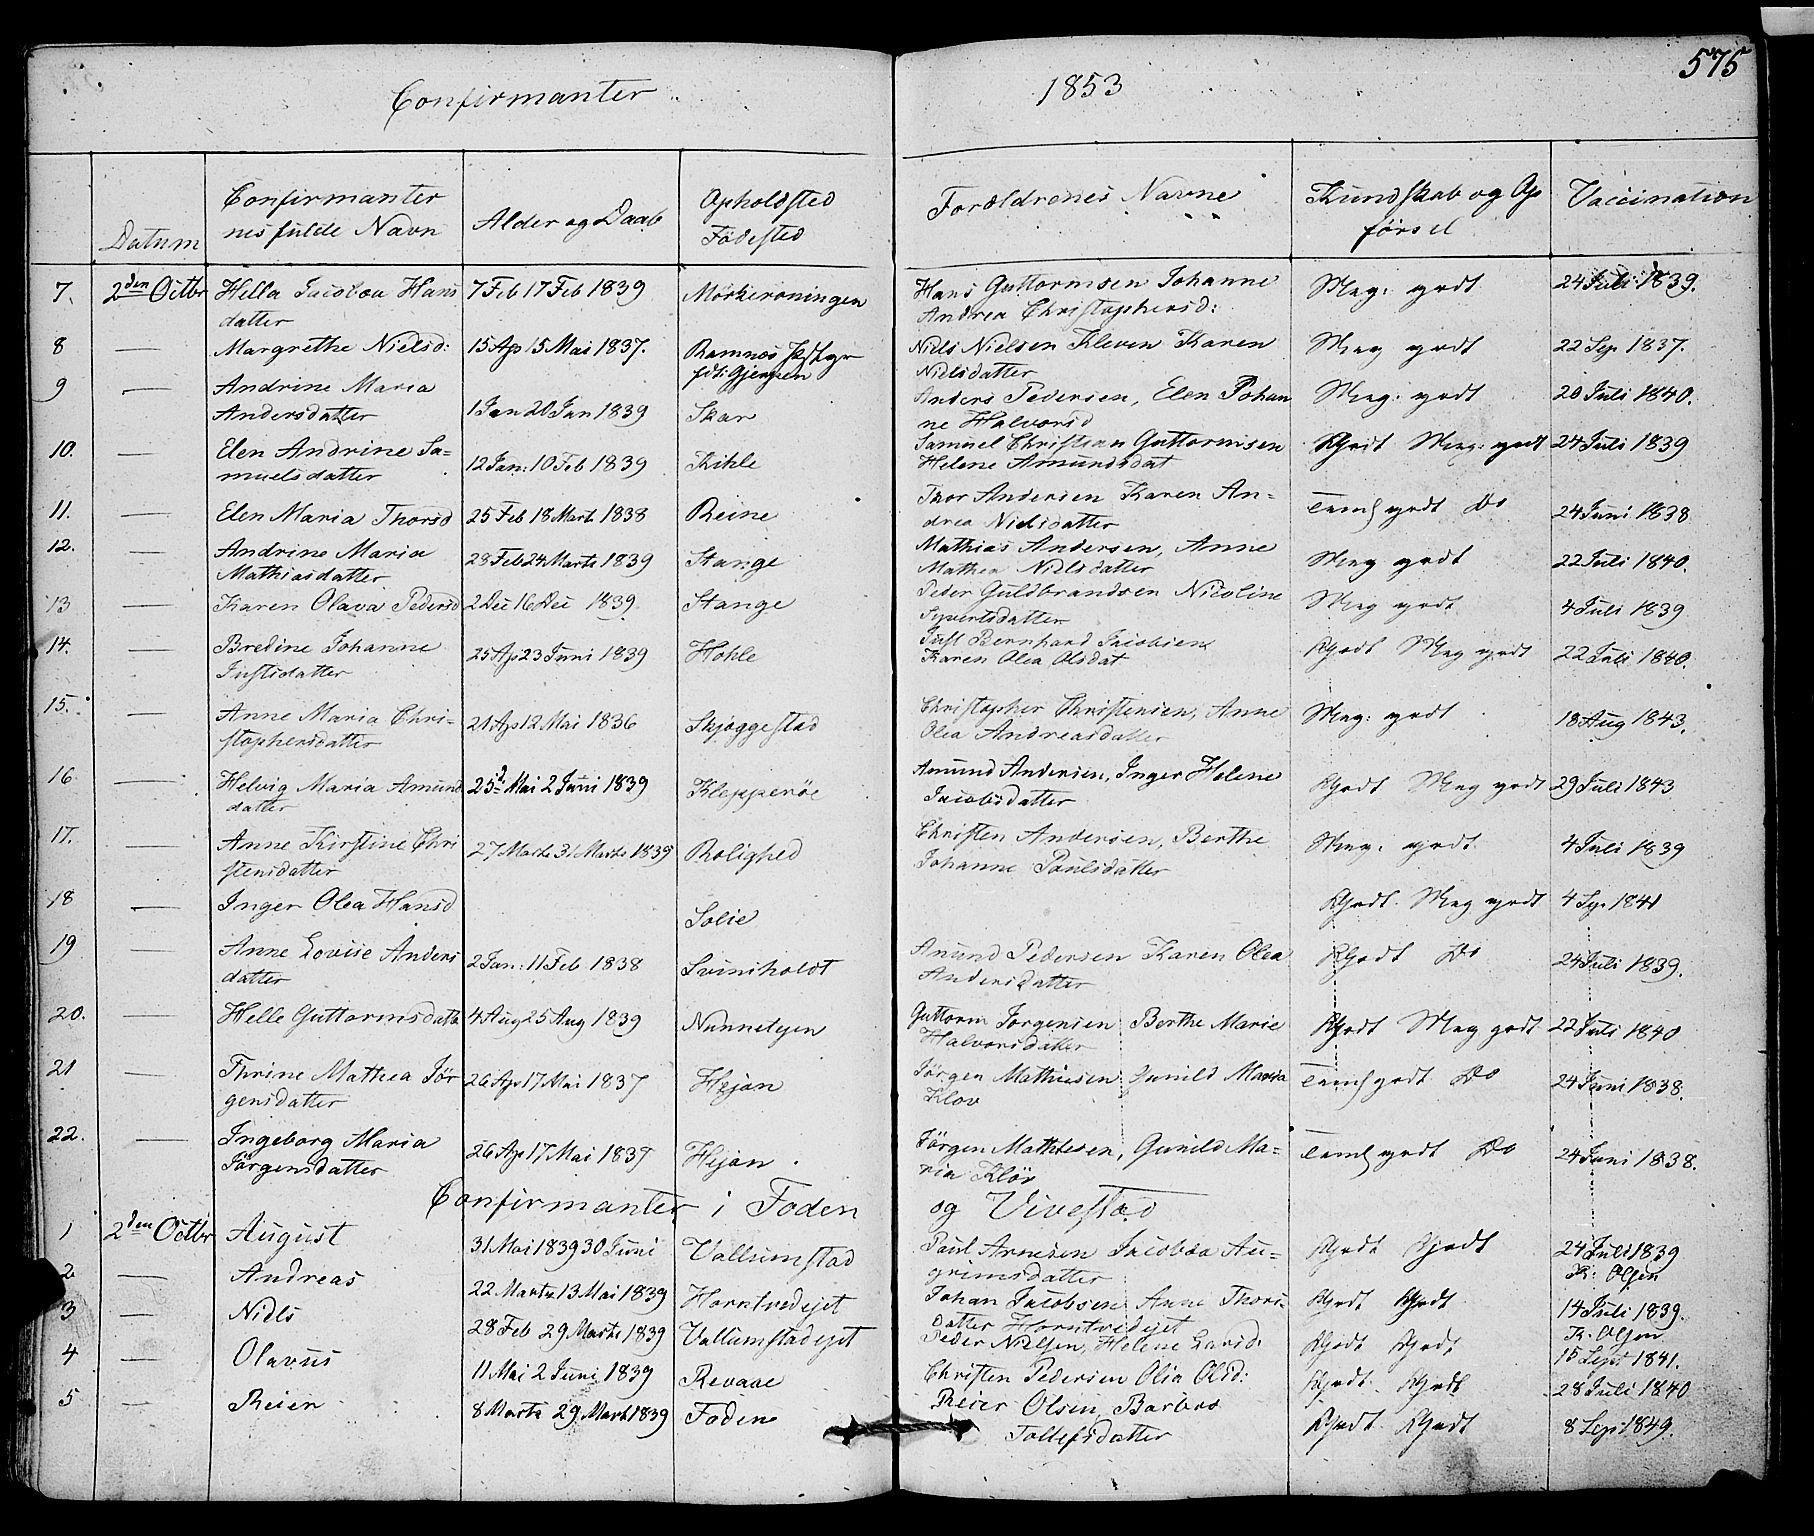 575
Confirmanter 1853
Datum | Confirmanternes fulde Navn | Alder og Daab | Opholdsted Fødested | Forældrenes Navne | Kundskab og Opførsel | Vaccination
7. 2den Octbr Hella Jacobæa Hans 7 Feb 17 Feb 1839 Mörkeroningen Hans Guttormsen Johanne Meg: godt 24 Juli 1839.
datter Andrea Christophersd:
8 — Margrethe Nielsd: 15 Ap 15 Mai 1837. Ramnæs Niels Nielsen Kleven Karen Meg godt 22 Sep 1837.
Nielsdatter
9 — Andrine Maria Anders Pedersen, Elen Johan Meg: godt 20 Juli 1840.
Andersdatter 1 Jan 20 Jan 1839 Skar ne Halvorsd
10. — Elen Andrine Sa= 12 Jan: 10 Feb 1839 Kihle Samuel Christian Guttormsen Godt Meg: godt 24 Juli 1839
muelsdatter Helene Amundsdat
11. — Elen Maria Thorsd 25 Feb 18 Marts 1838 Reine Thor Andersen Karen An= Teml godt Do 24 Juni 1838
drea Nielsdatter
12. — Andrine Maria 28 Feb 24 Marts 1839 Stange Mathias Andersen, Anne Meg godt 22 Juli 1840.
Mathiasdatter Mathea Nielsdatter
13 — Karen Olava Pedersd 2 Dec 16 Dec 1839. Stange Peder Guldbrandsen Nicoline Meg godt 4 Juli 1839
Syvertsdatter
14. — Bredine Johanne 25 Ap 23 Juni 1839 Hohle Just Bernhard Jacobsen Godt Meg godt 22 Juli 1840.
Justsdatter Karen Olea Olsdat
15. — Anne Maria Chri- 21 Ap 12 Mai 1836 Skjoggestad Christopher Christensen, Anne Meg: godt 18 Aug 1843.
stophersdatter Olea Andreasdatter
16. — Helvig Maria Amund 25d Mai 2 Juni 1839 Klopperöe Amund Andersen, Inger Helene Godt Meg godt 29 Juli 1843
datter Jacobsdatter
17. — Anne Kirstine Chri 27 Marts 31 Marts 1839 Rolighed Christen Andersen, Berthe Meg: godt 4 Juli 1839
stensdatter Johanne Paulsdatter
18 — Inger Olea Hansd Solie Godt Meg godt 4 Sp. 1841
19 — Anne Lovise Anders 2 Jan: 11 Feb 1838 Svinsholdt Anund Pedersen Karen Olea Godt Do 24 Juli 1839.
datter Andersdatter
20. — Helle Guttormsdatt 4 Aug 25 Aug 1839 Nunnetyen Guttorm Jörgensen Berthe Marie Godt Meg godt 22 Juli 1840
Halvorsdatter
21 — Thrine Mathea Jör 26 Ap 17 Mai 1837 Hejan Jörgen Mathiesen Gunild Maria Teml godt Do 24 Juni 1838.
gensdatter Klov
22. — Ingeborg Maria 26 Ap 17 Mai 1837 Hejan. Jörgen Mathiesen, Gunild Ma= Teml godt Do 24 Juni 1838.
Jörgensdatter ria Klöv
Confirmanter i Foden og Vivestad
1 2den Octbr August 31 Mai 1839 30 Juni Vallumstad Paul Arnesen Jacobæa Au= Godt Godt 24 Juli 1839
grimsdatter K: Olsen
2 — Andreas 22 Marts 13 Mai 1839 Horntvedejet Johan Jacobsen Anne Thors Godt Godt 14 Juli 1839.
datter Horntvedejet K. Olsen
3 — Niels 28 Feb 29 Marts 1839 Vallumstadejet Peder Nielsen, Helene Larsd: Godt Godt 15 Sept 1841.
4 — Olavus 11 Mai 2 Juni 1839 Revaae Christen Pedersen Olia Olsd: Godt. Godt 28 Juli 1840
5 — Reier 8 Marts 29 Marts 1839 Foden Reier Olsen, Barbro Godt. Godt 8 Sep 1849.
Tollefsdatter